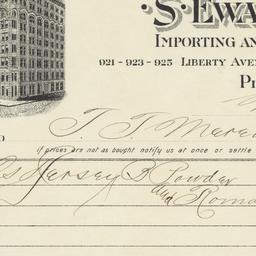 ·S·EWA
IMPORTING AN
921 - 923 - 925 LIBERTY AVE
PI
T. T. Mere
if prices are not as bought notify us at once or settle
Jersey B Powder
and Roma